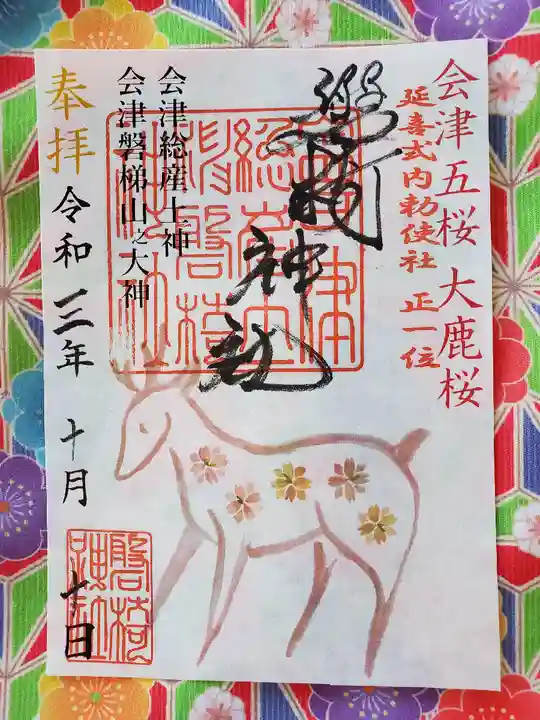 会津五桜 大鹿桜
延喜式内勅使社 正一位
磐椅神社
会津総産土神
会津磐梯山之大神
奉拝
令和三年 十月 十日
磐椅神社